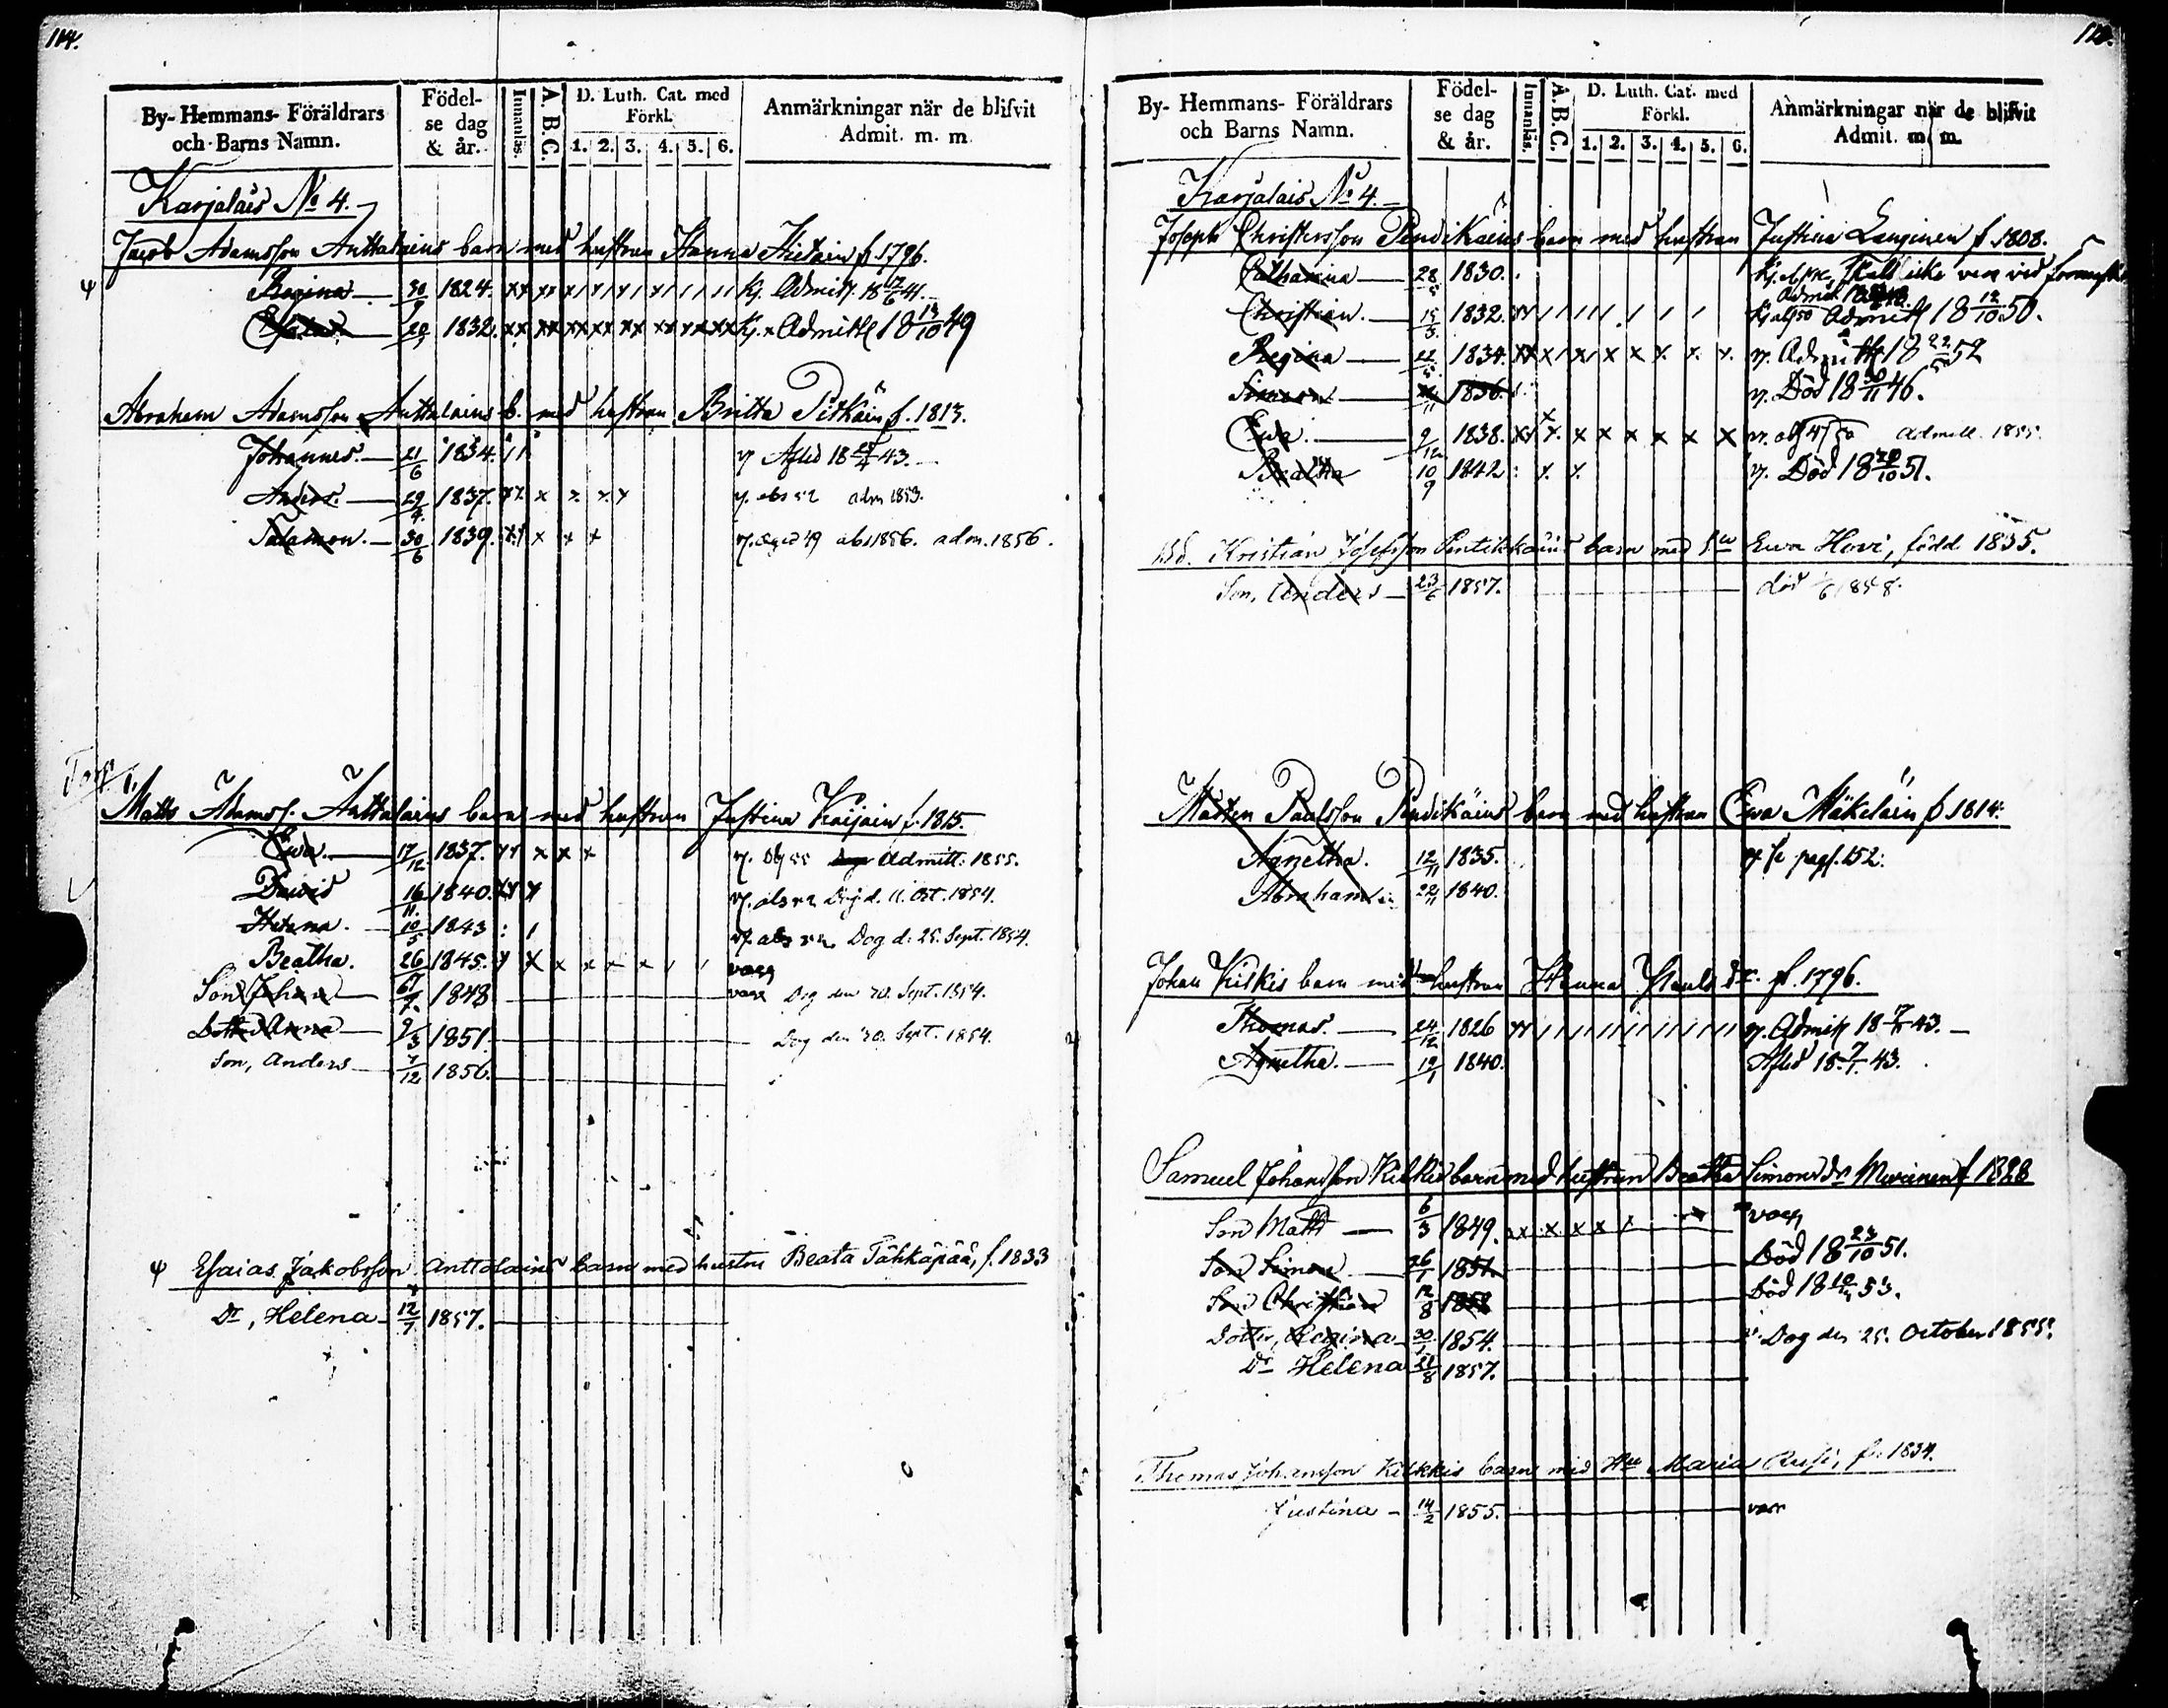 114.
By- Hemmans- Föräldrars
och Barns Namn.
Födel-
se dag
& år.
Innanläs.
A. B. C.
D. Luth. Cat. med
Förkl.
1. 2. 3. 4. 5. 6.
Anmärkningar när de blifvit
Admit. m. m.
Karjalais No 4.
Jacob Adamsson Anttalains barn med hustrun Hanna Hietain f 1796.
Regina 30/9 1824. Admitt. 18 12/6 41.
1832. Admitt 18 13/10 49
Abraham Adamsson Anttalains b. med hustrun Britta Pitkäin f. 1813.
Johannes. 21/6 1834. Afled 18 43.
Anders. 29/4 1837. abs 52 adm 1853.
Salamon. 30/6 1839. abs 1856. adm. 1856.
Torp.
Matts Adams. Anttalains barn med hustrun Justina Kaijain f. 1815.
Ewa. 17/12 1837. Admitt. 1855.
David 16/11 1840. abs 52 Dog d. 11. Oct. 1854.
Helena. 10/5 1843 abs 52. Dog d. 25. Sept. 1854.
Beatha. 26 1845. vacc
Son Johan 1848 vacc Dog den 20. Sept. 1854.
Dotter Anna 9/3 1851. Dog den 20. Sept. 1854.
Son, Anders 7/12 1856.
Esaias Jakobsson Anttalains barn med hustru Beata Tähkäpää, f. 1833
Dr, Helena 12/7 1857.
By- Hemmans- Föräldrars
och Barns Namn.
Födel-
se dag
& år.
Innanläs.
A. B. C.
D. Luth. Cat. med
Förkl.
1. 2. 3. 4. 5. 6.
Anmärkningar när de blifvit
Admit. m. m.
Karjalais No 4.
Joseph Christersson Pendikäins barn med hustrun Justina Langinen f 1808.
Catharina 28/5 1830.
Christian. 15/5 1832. Admitt 18 12/10 50.
Regina 1834. Admitt 18 22/5 52
Simon 1836. Död 18 30/11 46.
Ewa. 9/12 1838. Admitt. 1855.
Beatha 10/9 1842 Död 18 20/10 51.
Kristian Josefsson Pentikkäins barn med Ewa Hovi, född 1835.
Son, Anders 23/6 1857. död 1858.
Mårten Paulsson Pendikäins barn med hustrun Ewa Mäkeläin f 1814.
Agnetha. 12/11 1835. se pag. 152.
Abraham 22/11 1840.
Johan Kilkis barn med hustrun Hanna Pauls dr. f. 1796.
Thomas. 24/12 1826 Admitt 18 43.
Agnetha. 19/1 1840. Afled 18 43.
Samuel Johansson Kilkis barn med hustrun Beatha Simonsdr Muurinen f 1828
Son Matts 6/3 1849. vacc
Son Simon 26/1 1851. Död 18 23/10 51.
Son Christian 12/8 1852 Död 18 53.
Dotter, Regina 30/1 1854. Dog den 25. October 1855.
Dr Helena 28/8 1857.
Thomas Johansson Kilkkis barn med Hu Maria Rusi, f. 1834.
Justina 14/2 1855. vacc